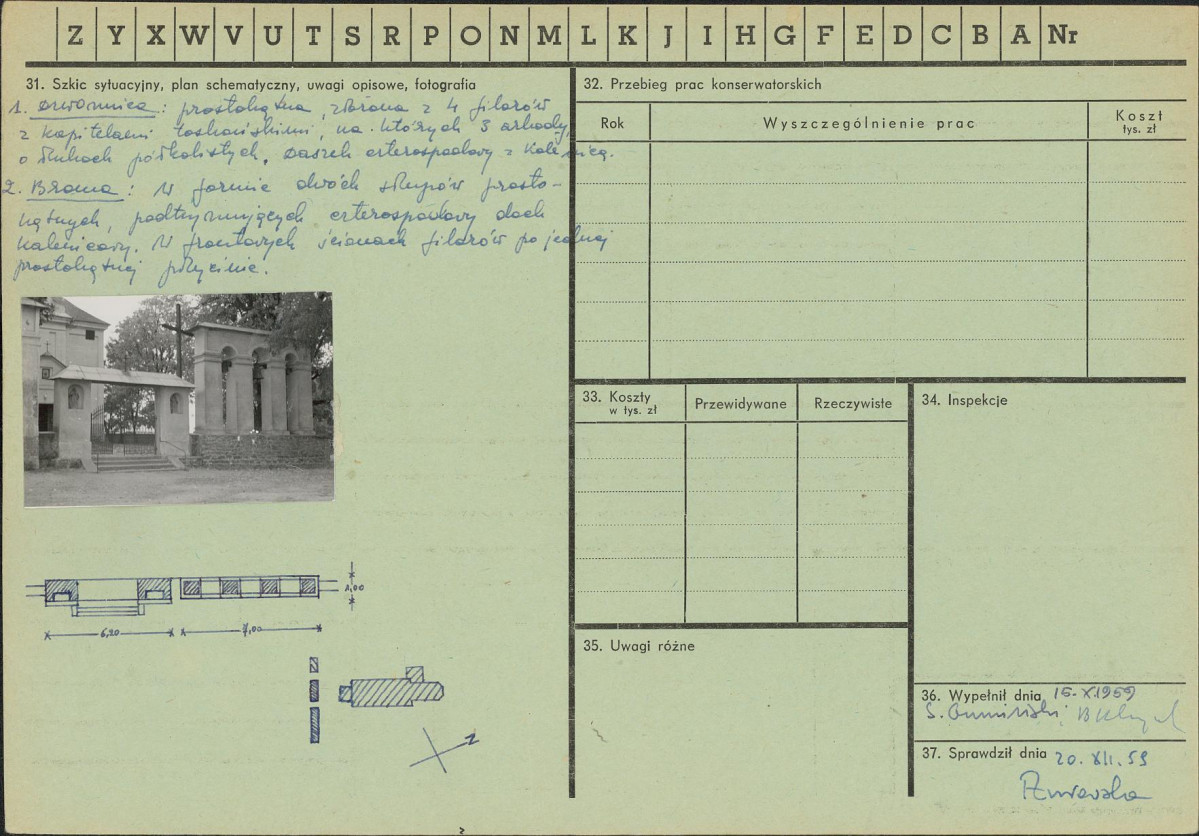 Z Y X W V U T S R P O N M L K J I H G F E D C B A Nr
31. Szkic sytuacyjny, plan schematyczny, uwagi opisowe, fotografia
1. Dzwonnica : prostokątna, złożona z 4 filarów
z kapitelami toskańskimi, na których 3 arkady,
o łukach półkolistych. Daszek czterospadowy z kalenicą.
2. Brama : W formie dwóch słupów prosto-
kątnych, podtrzymujących czterospadowy dach
kalenicowy. W frontowych ścianach filarów po jednej
prostokątnej płycinie.
6,20
7,00
1,00
N
32. Przebieg prac konserwatorskich
Rok
Wyszczególnienie prac
Koszt
tys. zł
33. Koszty
w tys. zł
Przewidywane
Rzeczywiste
34. Inspekcje
35. Uwagi różne
36. Wypełnił dnia 15.X.1959
37. Sprawdził dnia 20.XII.59